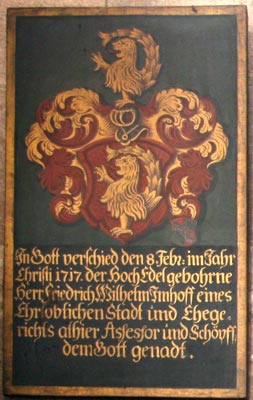 In Gott verschied den 8. Febr: im Jahr
Christi 1717. der Hoch Edelgebohrne
Herr Friedrich Wilhelm Imhoff eines
Ehrloblichen Stadt und Ehege-
richts alhier Assessor und Schöpff,
dem Gott genadt.